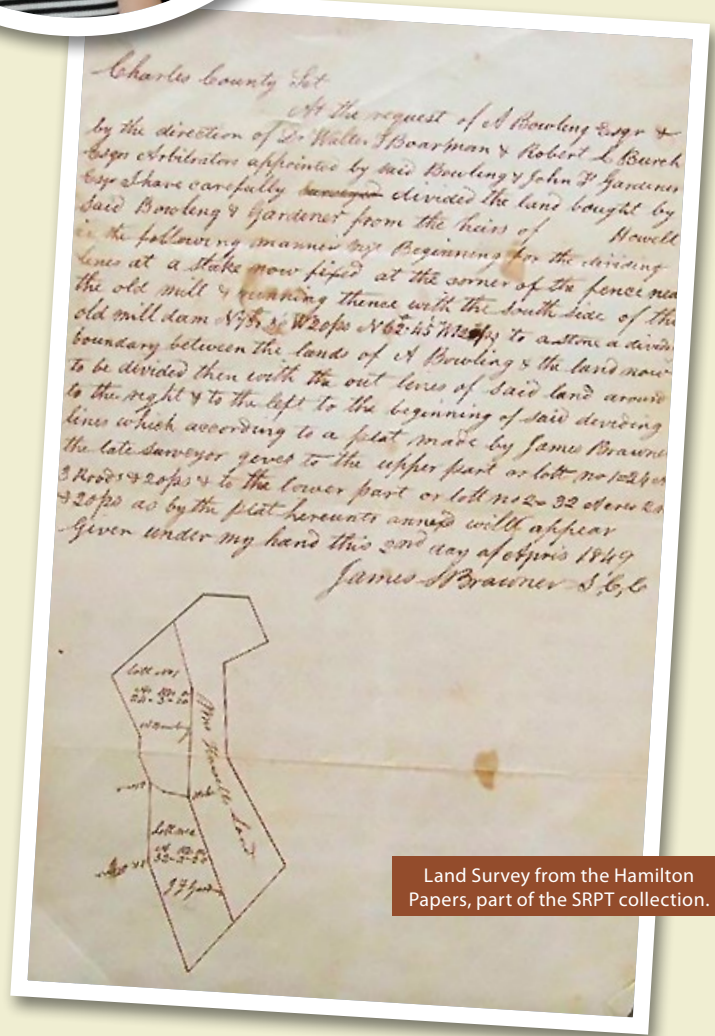 Charles County Sct
At the request of A Bowling Esqr &
by the direction of Dr Walter F Boarman & Robert L Burch
Esqrs Arbitrators appointed by said Bowling & John F Gardener
Esqr I have carefully surveyed divided the land bought by
said Bowling & Gardener from the heirs of Howell
in the following manner viz Beginning for the dividing
lines at a stake now fixed at the corner of the fence near
the old mill & running thence with the south side of the
old mill dam W20ps N62.45 to a stone a divid
boundary between the lands of A Bowling & the land now
to be divided then with the out lines of said land around
to the right & to the left to the beginning of said deviding
lines which according to a plat made by James Brawner
the late surveyor gives to the upper part or lott no 1 24
3 Roods & 20ps & to the lower part or lott no 2 32 Acres 2
& 20ps as by the plat hereunto annexd will appear
Given under my hand this 2nd day of April 1849
James S Brawner S C C
Lott No 1
24-3-20
A Bowling
Mrs Howells Land
Stake
Lott no 2
32-2-20
J F Gard
Land Survey from the Hamilton
Papers, part of the SRPT collection.